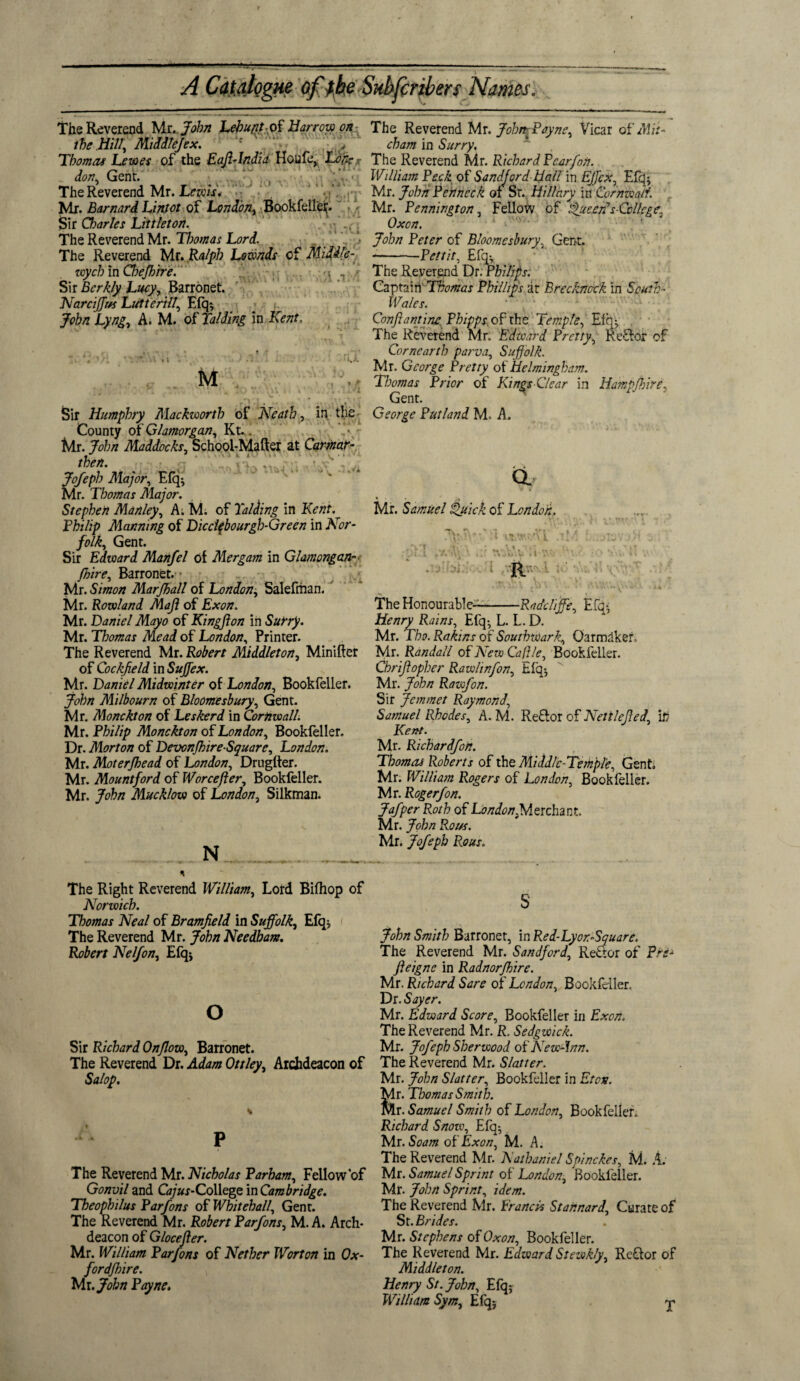 A Catalogue of the Subſcribers Names.
The Reverend Mr. John Lehunt of Harrow on
the Hill, Middleſex.
Thomas Lewes of the Eaſt-India Houſe, Lon-
don, Gent.
The Reverend Mr. Lewis.
Mr. Barnard Lintot of London, Bookſeller.
Sir Charles Littleton.
The Reverend Mr. Thomas Lord.
The Reverend Mr. Ralph Lownds of Middle-
wych in Cheſhire.
Sir Berkly Lucy, Barronet.
Narciſſus Lutterill, Eſq;
John Lyng, A. M. of Talding in Kent.
M
Sir Humphry Mackworth of Neath, in the
County of Glamorgan, Kt.
Mr. John Maddocks, School-Maſter at Carmar-
then.
Joſeph Major, Eſq;
Mr. Thomas Major.
Stephen Manley, A. M. of Talding in Kent.
Philip Manning of Dicclebourgh-Green in Nor-
folk, Gent.
Sir Edward Manſel of Mergam in Glamongan-
ſhire, Barronet.
Mr. Simon Marſhall of London, Saleſman.
Mr. Rowland Maſt of Exon.
Mr. Daniel Mayo of Kingſton in Surry.
Mr. Thomas Mead of London, Printer.
The Reverend Mr. Robert Middleton, Miniſter
of Cockfield in Suſſex.
Mr. Daniel Midwinter of London, Bookſeller.
John Milbourn of Bloomesbury, Gent.
Mr. Monckton of Leskerd in Cornwall.
Mr. Philip Monckton of London, Bookſeller.
Dr. Morton of Devonſhire-Square, London.
Mr. Moterſhead of London, Drugſter.
Mr. Mountford of Worceſter, Bookſeller.
Mr. John Mucklow of London, Silkman.
N
The Right Reverend William, Lord Biſhop of
Norwich.
Thomas Neal of Bramfield in Suffolk, Eſq;
The Reverend Mr. John Needham.
Robert Nelſon, Eſq;
O
Sir Richard Onſlow, Barronet.
The Reverend Dr. Adam Ottley, Archdeacon of
Salop.
P
The Reverend Mr. Nicholas Parham, Fellow of
Gonvil and Cajus-College in Cambridge.
Theophilus Parſons of Whitehall, Gent.
The Reverend Mr. Robert Parſons, M. A. Arch-
deacon of Gloceſter.
Mr. William Parſons of Nether Worton in Ox-
fordſhire.
Mr. John Payne.
The Reverend Mr. John Payne, Vicar of Mit-
cham in Surry.
The Reverend Mr. Richard Pearſon.
William Peck of Sandford Hall in Eſſex, Eſq;
Mr. John Penneck of St. Hillary in Cornwall.
Mr. Pennington, Fellow of Queen's-College,
Oxon.
John Peter of Bloomesbury, Gent.
——Pettit, Eſq;
The Reverend Dr. Philips.
Captain Thomas Phillips at Brecknock in South-
Wales.
Conſtantine Phipps of the Temple, Eſq;
The Reverend Mr. Edward Pretty, Rector of
Cornearth parva, Suffolk.
Mr. George Pretty of Helmingham.
Thomas Prior of Kings-Clear in Hampſhire,
Gent.
George Putland M. A.
Q
Mr. Samuel Quick of London.
R
The Honourable——Radcliffe, Eſq;
Henry Rains, Eſq; L. L. D.
Mr. Tho. Rakins of Southwark, Oarmaker.
Mr. Randall of New Caſtle, Bookſeller.
Chriſtopher Rawlinſon, Eſq;
Mr. John Rawſon.
Sir Jemmet Raymond,
Samuel Rhodes, A. M. Rector of Nettleſted, in
Kent.
Mr. Richardſon.
Thomas Roberts of the Middle-Temple, Gent.
Mr. William Rogers of London, Bookſeller.
Mr. Rogerſon.
Jaſper Roth of London, Merchant.
Mr. John Rous.
Mr. Joſeph Rous.
S
John Smith Barronet, in Red-Lyon-Square.
The Reverend Mr. Sandford, Rector of Pre-
ſteigne in Radnorſhire.
Mr. Richard Sare of London, Bookſeller.
Dr. Sayer.
Mr. Edward Score, Bookſeller in Exon.
The Reverend Mr. R. Sedgwick.
Mr. Joſeph Sherwood of New-Inn.
The Reverend Mr. Slatter.
Mr. John Slatter, Bookſeller in Eton.
Mr. Thomas Smith.
Mr. Samuel Smith of London, Bookſeller.
Richard Snow, Eſq;
Mr. Soam of Exon, M. A.
The Reverend Mr. Nathaniel Spinckes, M. A.
Mr. Samuel Sprint of London, Bookſeller.
Mr. John Sprint, idem.
The Reverend Mr. Francis Stannard, Curate of
St. Brides.
Mr. Stephens of Oxon, Bookſeller.
The Reverend Mr. Edward Stewkly, Rector of
Middleton.
Henry St. John, Eſq;
William Sym, Eſq;
T